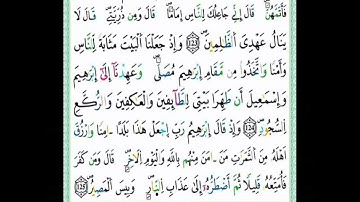 فَأَتَمَّهُنَّ قَالَ إِنِّي جَاعِلُكَ لِلنَّاسِ إِمَامًا قَالَ وَمِن ذُرِّيَّتِي قَالَ لَا
يَنَالُ عَهْدِيَ اَ۬لظَّٰلِمِينَ 123 وَإِذْ جَعَلْنَا اَ۬لْبَيْتَ مَثَابَةً لِّلنَّاسِ
وَأَمْنًا وَاتَّخَذُوا مِن مَّقَامِ إِبْرَٰهِيمَ مُصَلًّى وَعَهِدْنَا إِلَىٰ إِبْرَٰهِيمَ
وَإِسْمَٰعِيلَ أَن طَهِّرَا بَيْتِيَ لِلطَّآئِفِينَ وَالْعَٰكِفِينَ وَالرُّكَّعِ
اِ۬لسُّجُودِ 124 وَإِذْ قَالَ إِبْرَٰهِيمُ رَبِّ اِ۪جْعَلْ هَٰذَا بَلَدًا ـامِنًا وَارْزُقْ
أَهْلَهُۥ مِنَ اَ۬لثَّمَرَٰتِ مَنَ ـامَنَ مِنْهُم بِاللَّهِ وَالْيَوْمِ اِ۬لَاخِرِ قَالَ وَمَن كَفَرَ
فَأُمَتِّعُهُۥ قَلِيلًا ثُمَّ أَضْطَرُّهُۥ إِلَىٰ عَذَابِ اِ۬لنَّارِ وَبِيسَ اَ۬لْمَصِيرُ 125